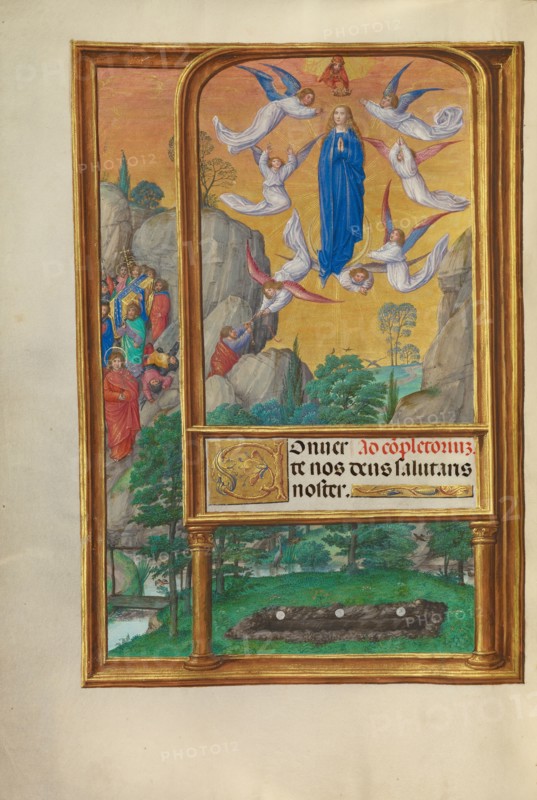 Onuer Ad cõpletorium.
te nos deus salutaris
noster.
PHOTO12